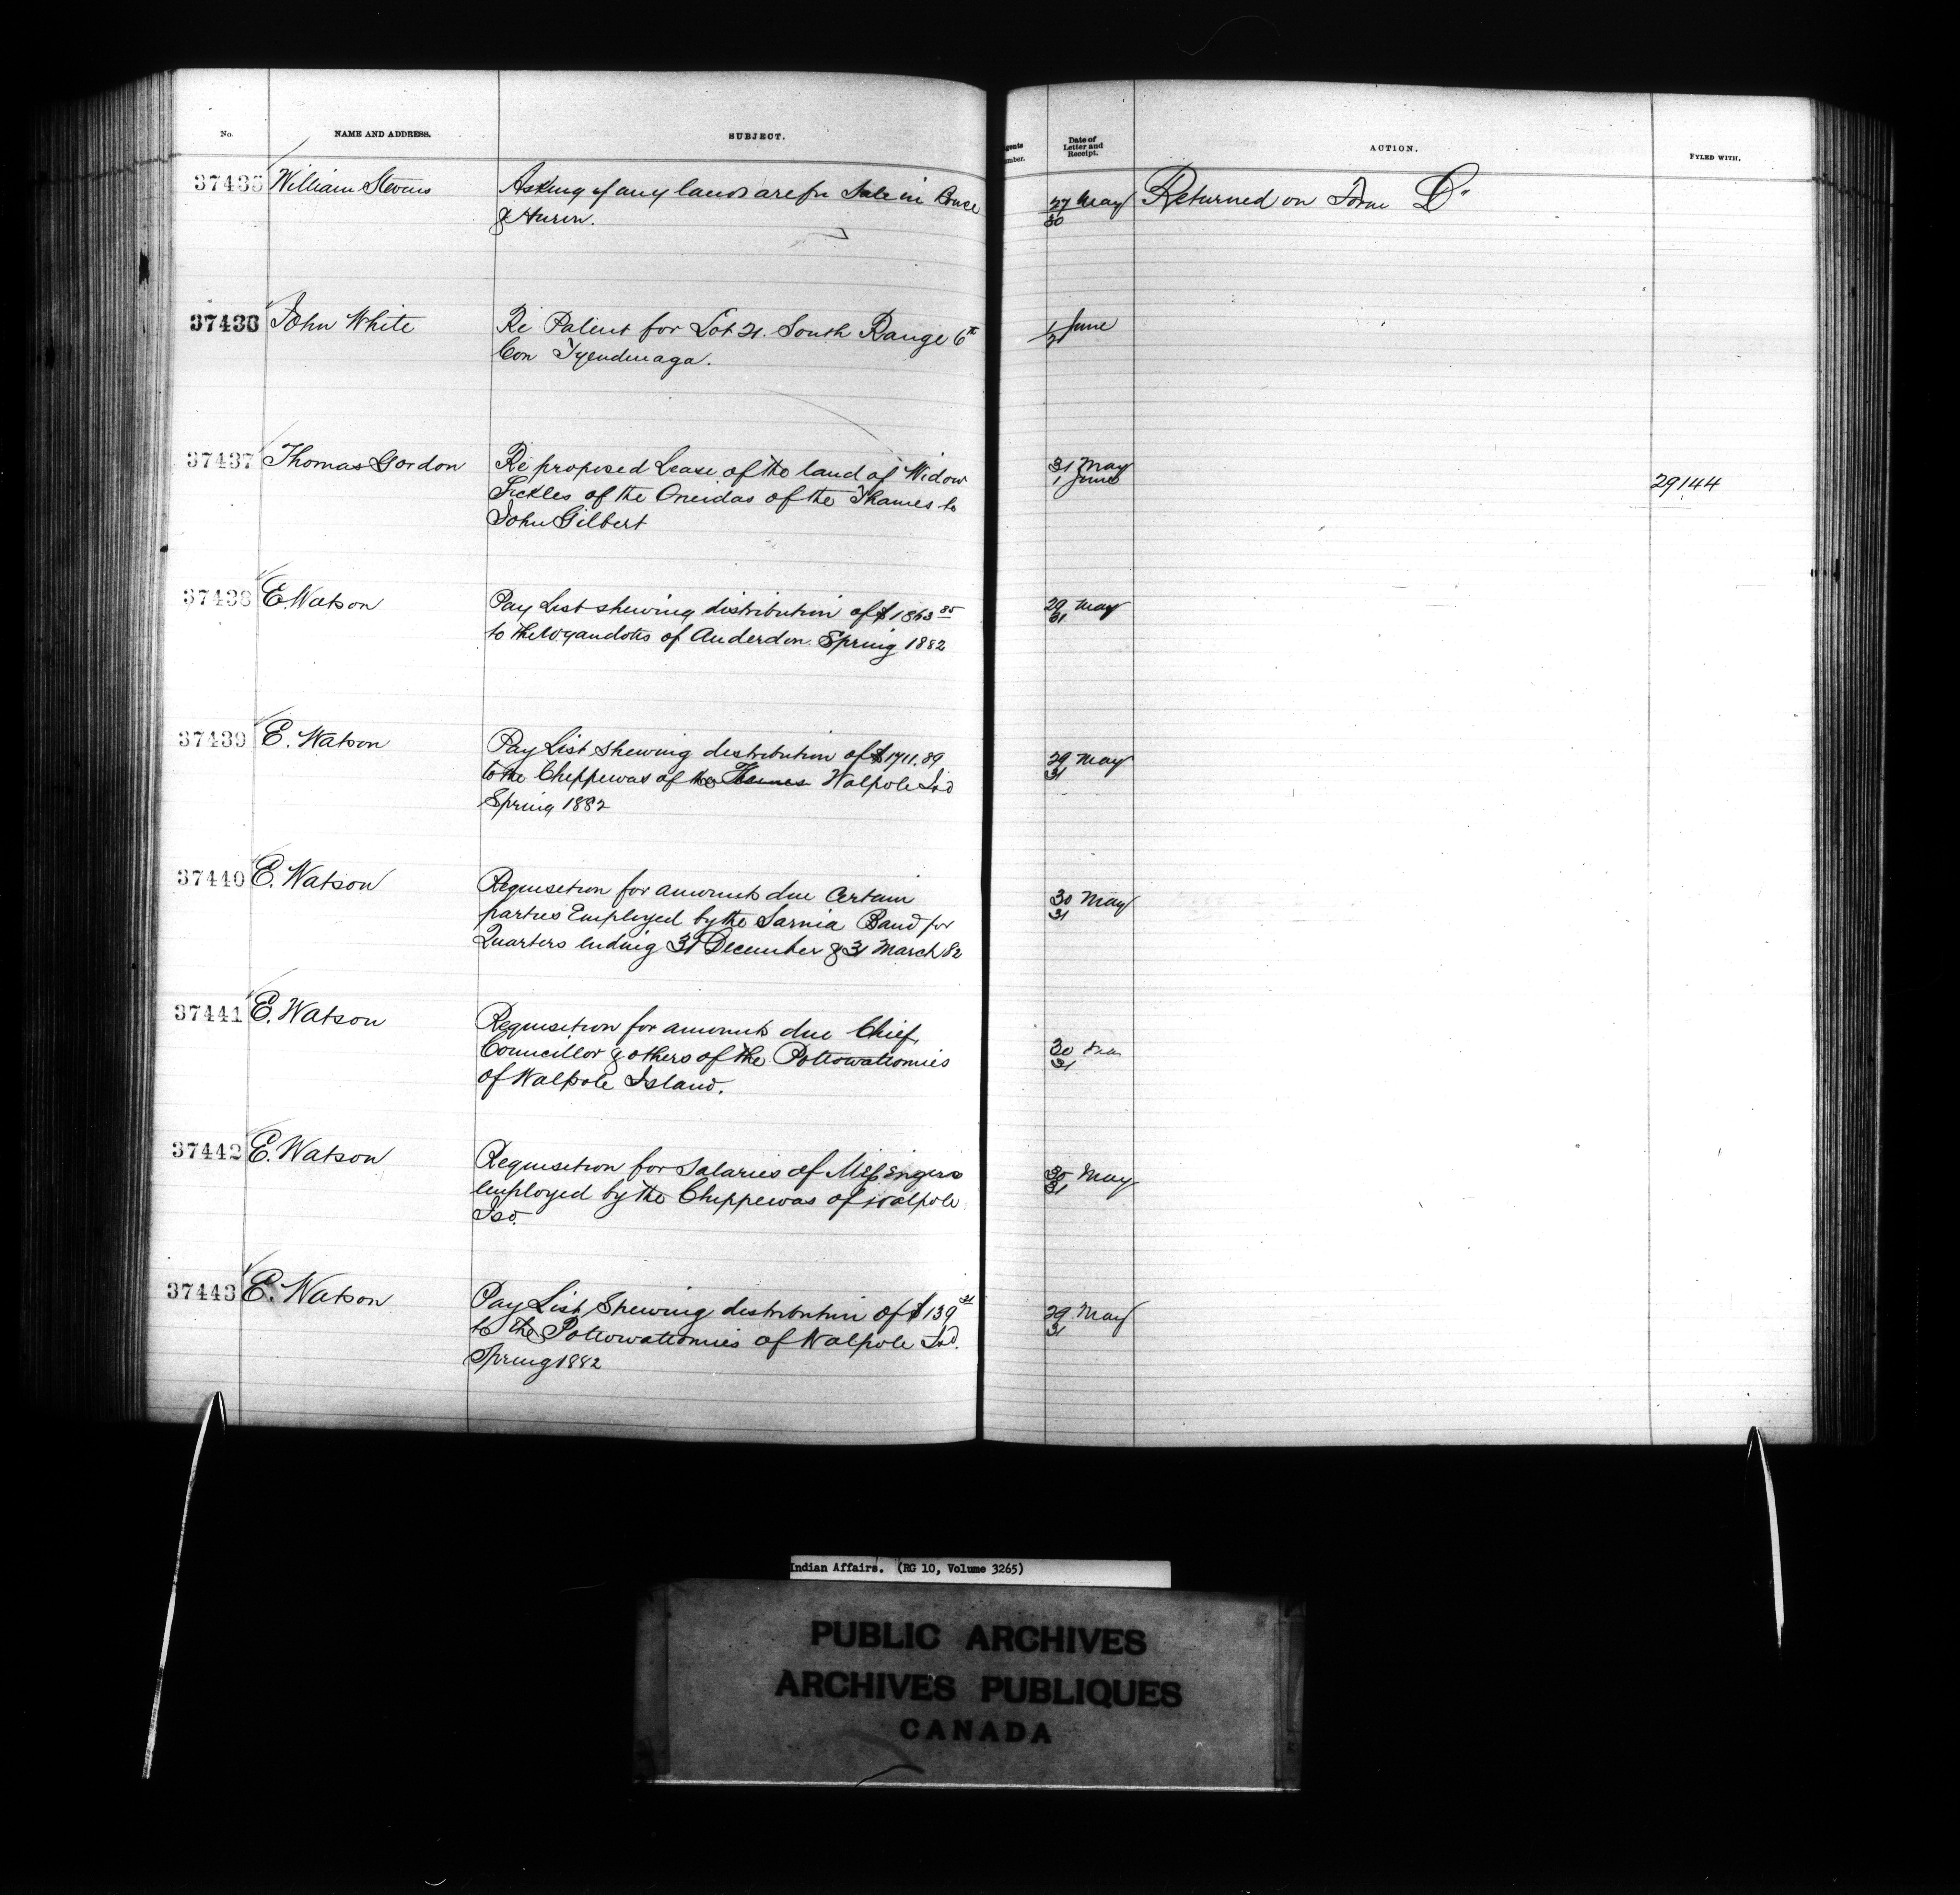 No. NAME AND ADDRESS. SUBJECT. Date of Letter and Receipt. ACTION. FYLED WITH.
37435 William Stevens Asking if any lands are for Sale in Bruce 27 May Returned on Form D"
& Huron. 30
37436 John White Re Patent for Lot 21. South Range 6th 1 June
Con Tyendinaga.
37437 Thomas Gordon Re proposed Lease of the land of Widow 31 May
Sickles of the Oneidas of the Thames to 1 June 29144
John Gilbert
37438 E. Watson Pay List shewing distribution of $1863 85 29 May
to the Wyandotts of Anderdon. Spring 1882 31
37439 E. Watson Pay List shewing distribution of $1711.89 29 May
to the Chippewas of the Thames Walpole Isd 31
Spring 1882
37440 E. Watson Requisition for amounts due Certain 30 May
parties Employed by the Sarnia Band for 31
Quarters ending 31 December & 31 March 82
37441 E. Watson Requisition for amounts due Chief, 30
Councillor & others of the Pottowattomies 31
of Walpole Island.
37442 E. Watson Requisition for Salaries of Messengers 30 May
employed by the Chippewas of Walpole 31
Isd.
37443 E. Watson Pay List Shewing distribution of $139 29 May
to the Pottowattomies of Walpole Isd. 31
Spring 1882
Indian Affairs. (RG 10, Volume 3265)
PUBLIC ARCHIVES
ARCHIVES PUBLIQUES
CANADA